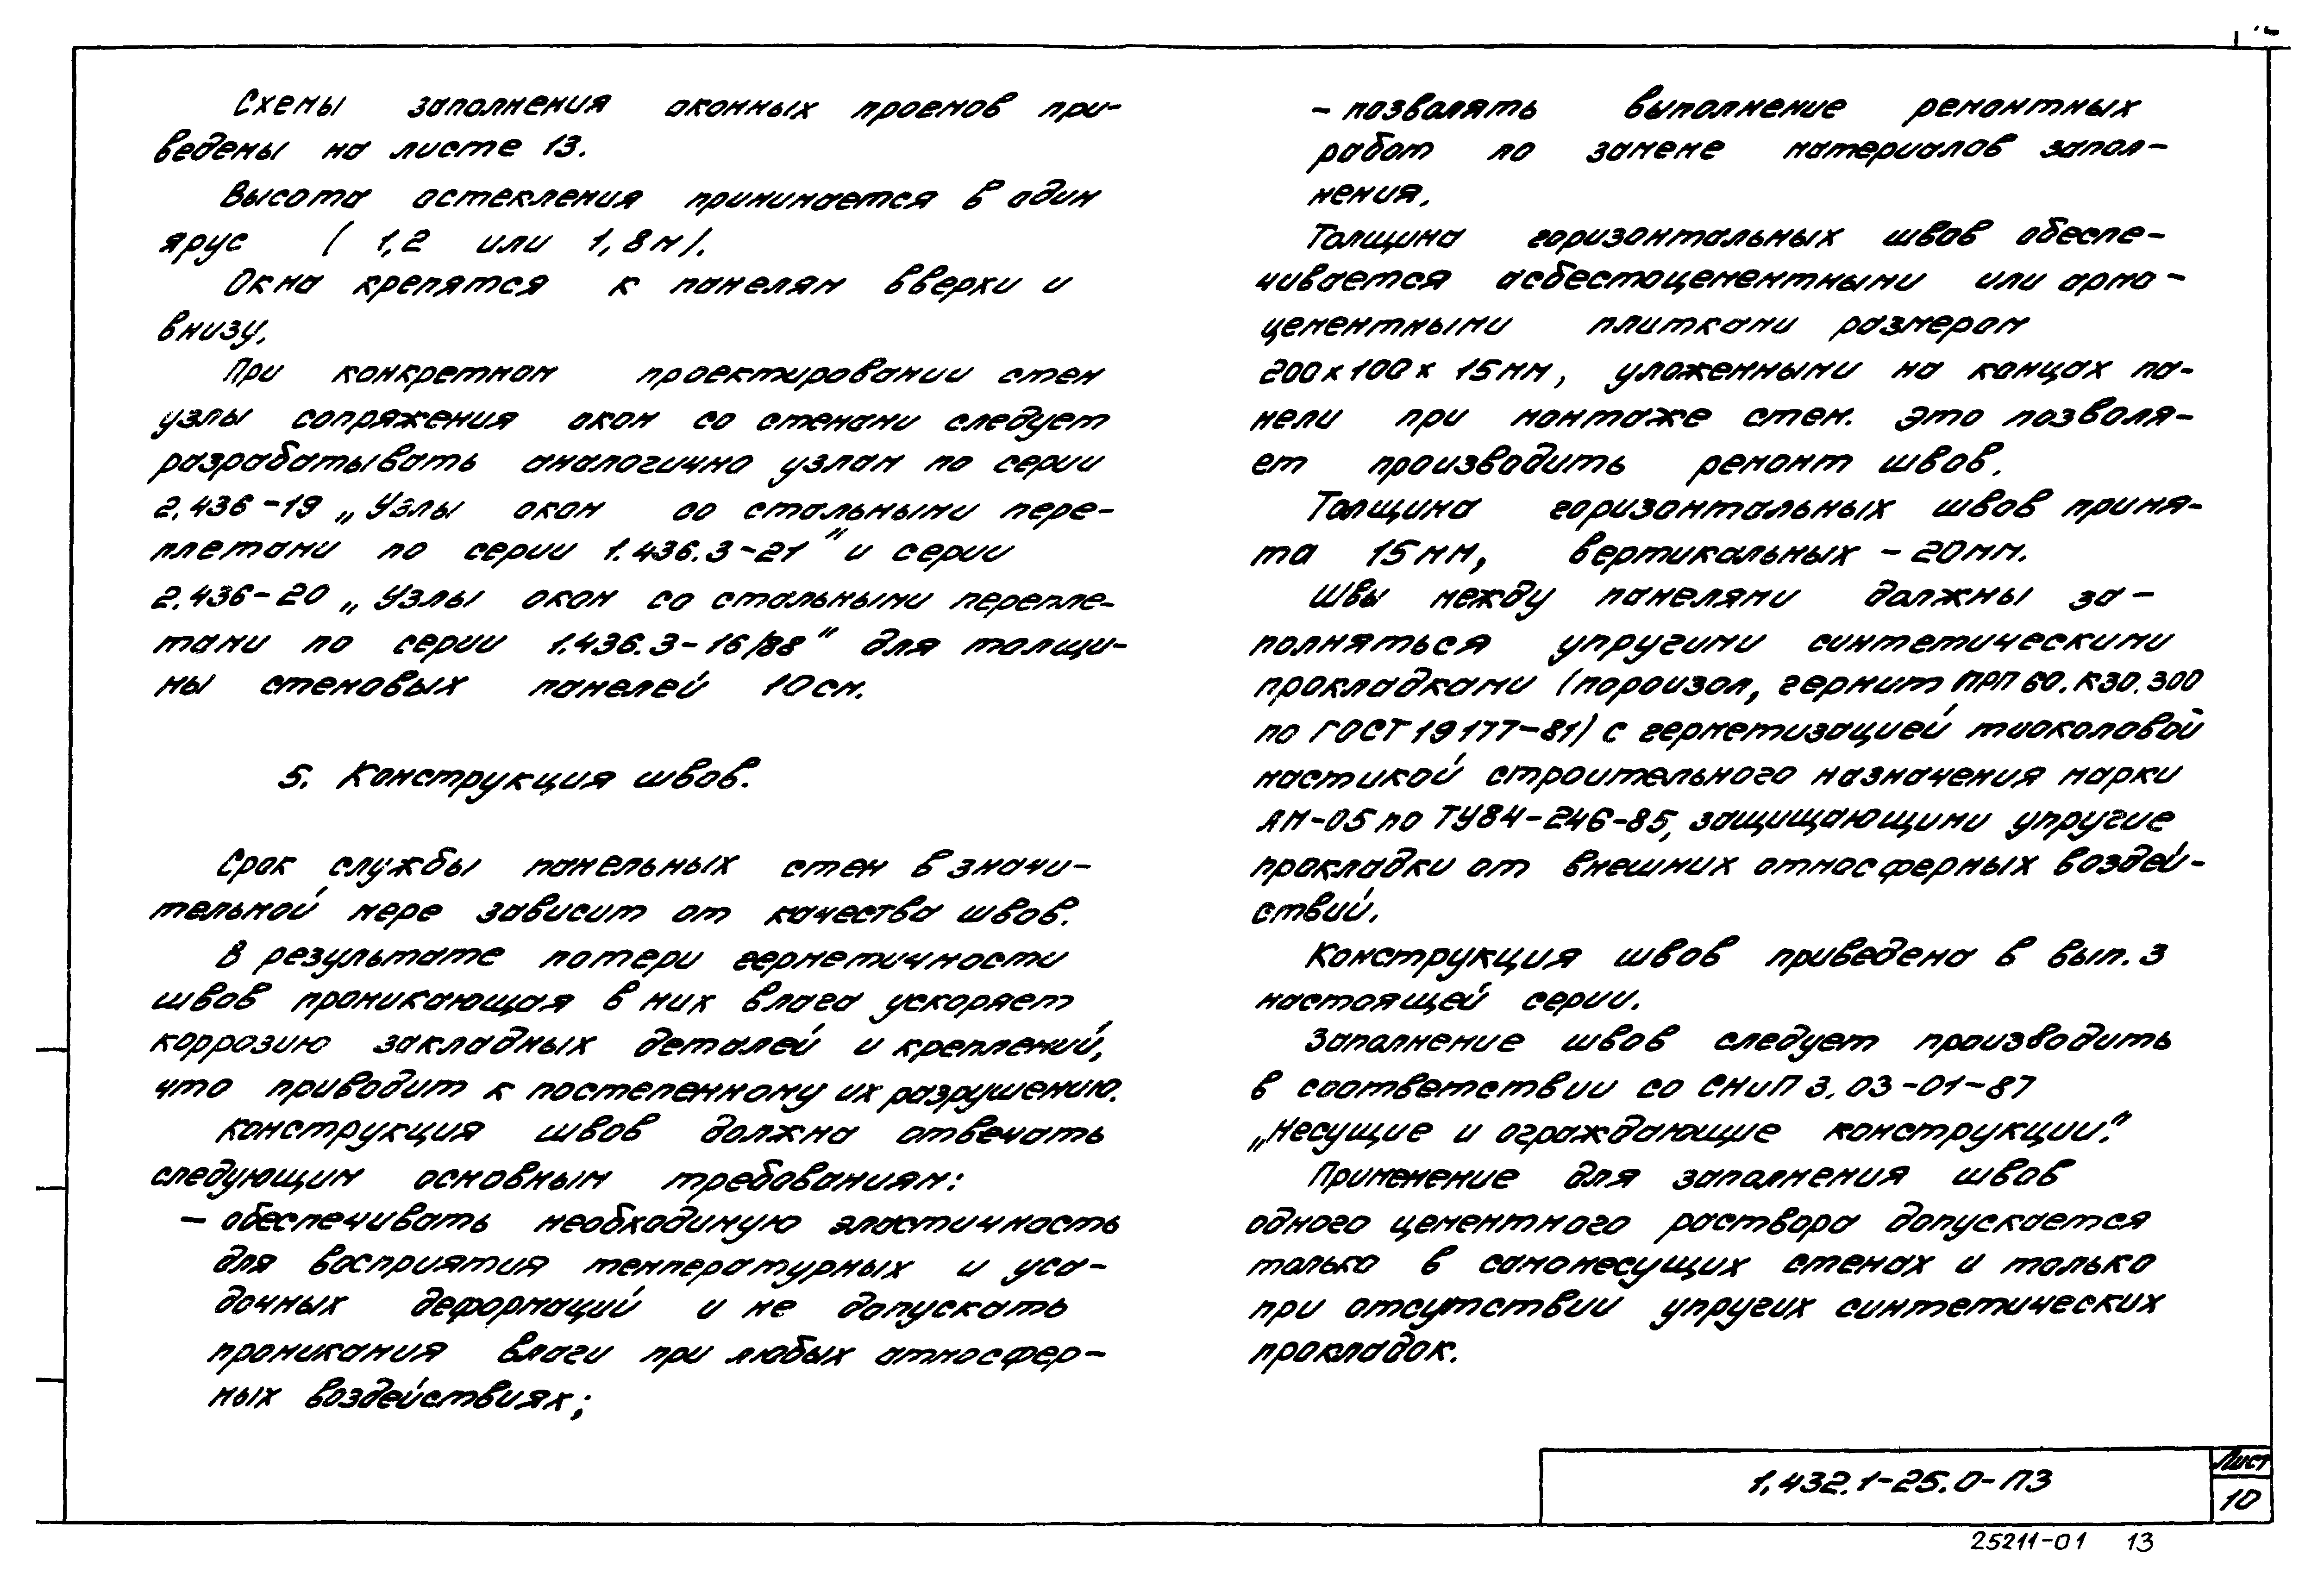 Схемы заполнения оконных проемов при-
ведены на листе 13.
Высота остекления принимается в один
ярус ( 1,2 или 1,8м).
Окна крепятся к панелям вверху и
внизу.
При конкретном проектировании стен
узлы сопряжения окон со стенами следует
разрабатывать аналогично узлам по серии
2.436-19 „Узлы окон со стальными пере-
плетами по серии 1.436.3-21" и серии
2.436-20 „Узлы окон со стальными перепле-
тами по серии 1.436.3-16/88" для толщи-
ны стеновых панелей 10см.
5. Конструкция швов.
Срок службы панельных стен в значи-
тельной мере зависит от качества швов.
В результате потери герметичности
швов проникающая в них влага ускоряет
коррозию закладных деталей и креплений,
что приводит к постепенному их разрушению.
Конструкция швов должна отвечать
следующим основным требованиям:
- обеспечивать необходимую эластичность
для восприятия температурных и уса-
дочных деформаций и не допускать
проникания влаги при любых атмосфер-
ных воздействиях;
- позволять выполнение ремонтных
работ по замене материалов запол-
нения.
Толщина горизонтальных швов обеспе-
чивается асбестоцементными или армо-
цементными плитками размером
200х100х15мм, уложенными на концах па-
нели при монтаже стен. Это позволя-
ет производить ремонт швов.
Толщина горизонтальных швов приня-
та 15мм, вертикальных - 20мм.
Швы между панелями должны за-
полняться упругими синтетическими
прокладками (пороизол, гернит ПРП 60.К30.300
по ГОСТ 19177-81) с герметизацией тиоколовой
мастикой строительного назначения марки
АМ-05 по ТУ84-246-85, защищающими упругие
прокладки от внешних атмосферных воздей-
ствий.
Конструкция швов приведена в вып. 3
настоящей серии.
Заполнение швов следует производить
в соответствии со СНиП 3.03-01-87
„Несущие и ограждающие конструкции".
Применение для заполнения швов
одного цементного раствора допускается
только в самонесущих стенах и только
при отсутствии упругих синтетических
прокладок.
1.432.1-25.0-ПЗ
Лист
10
25211-01 13